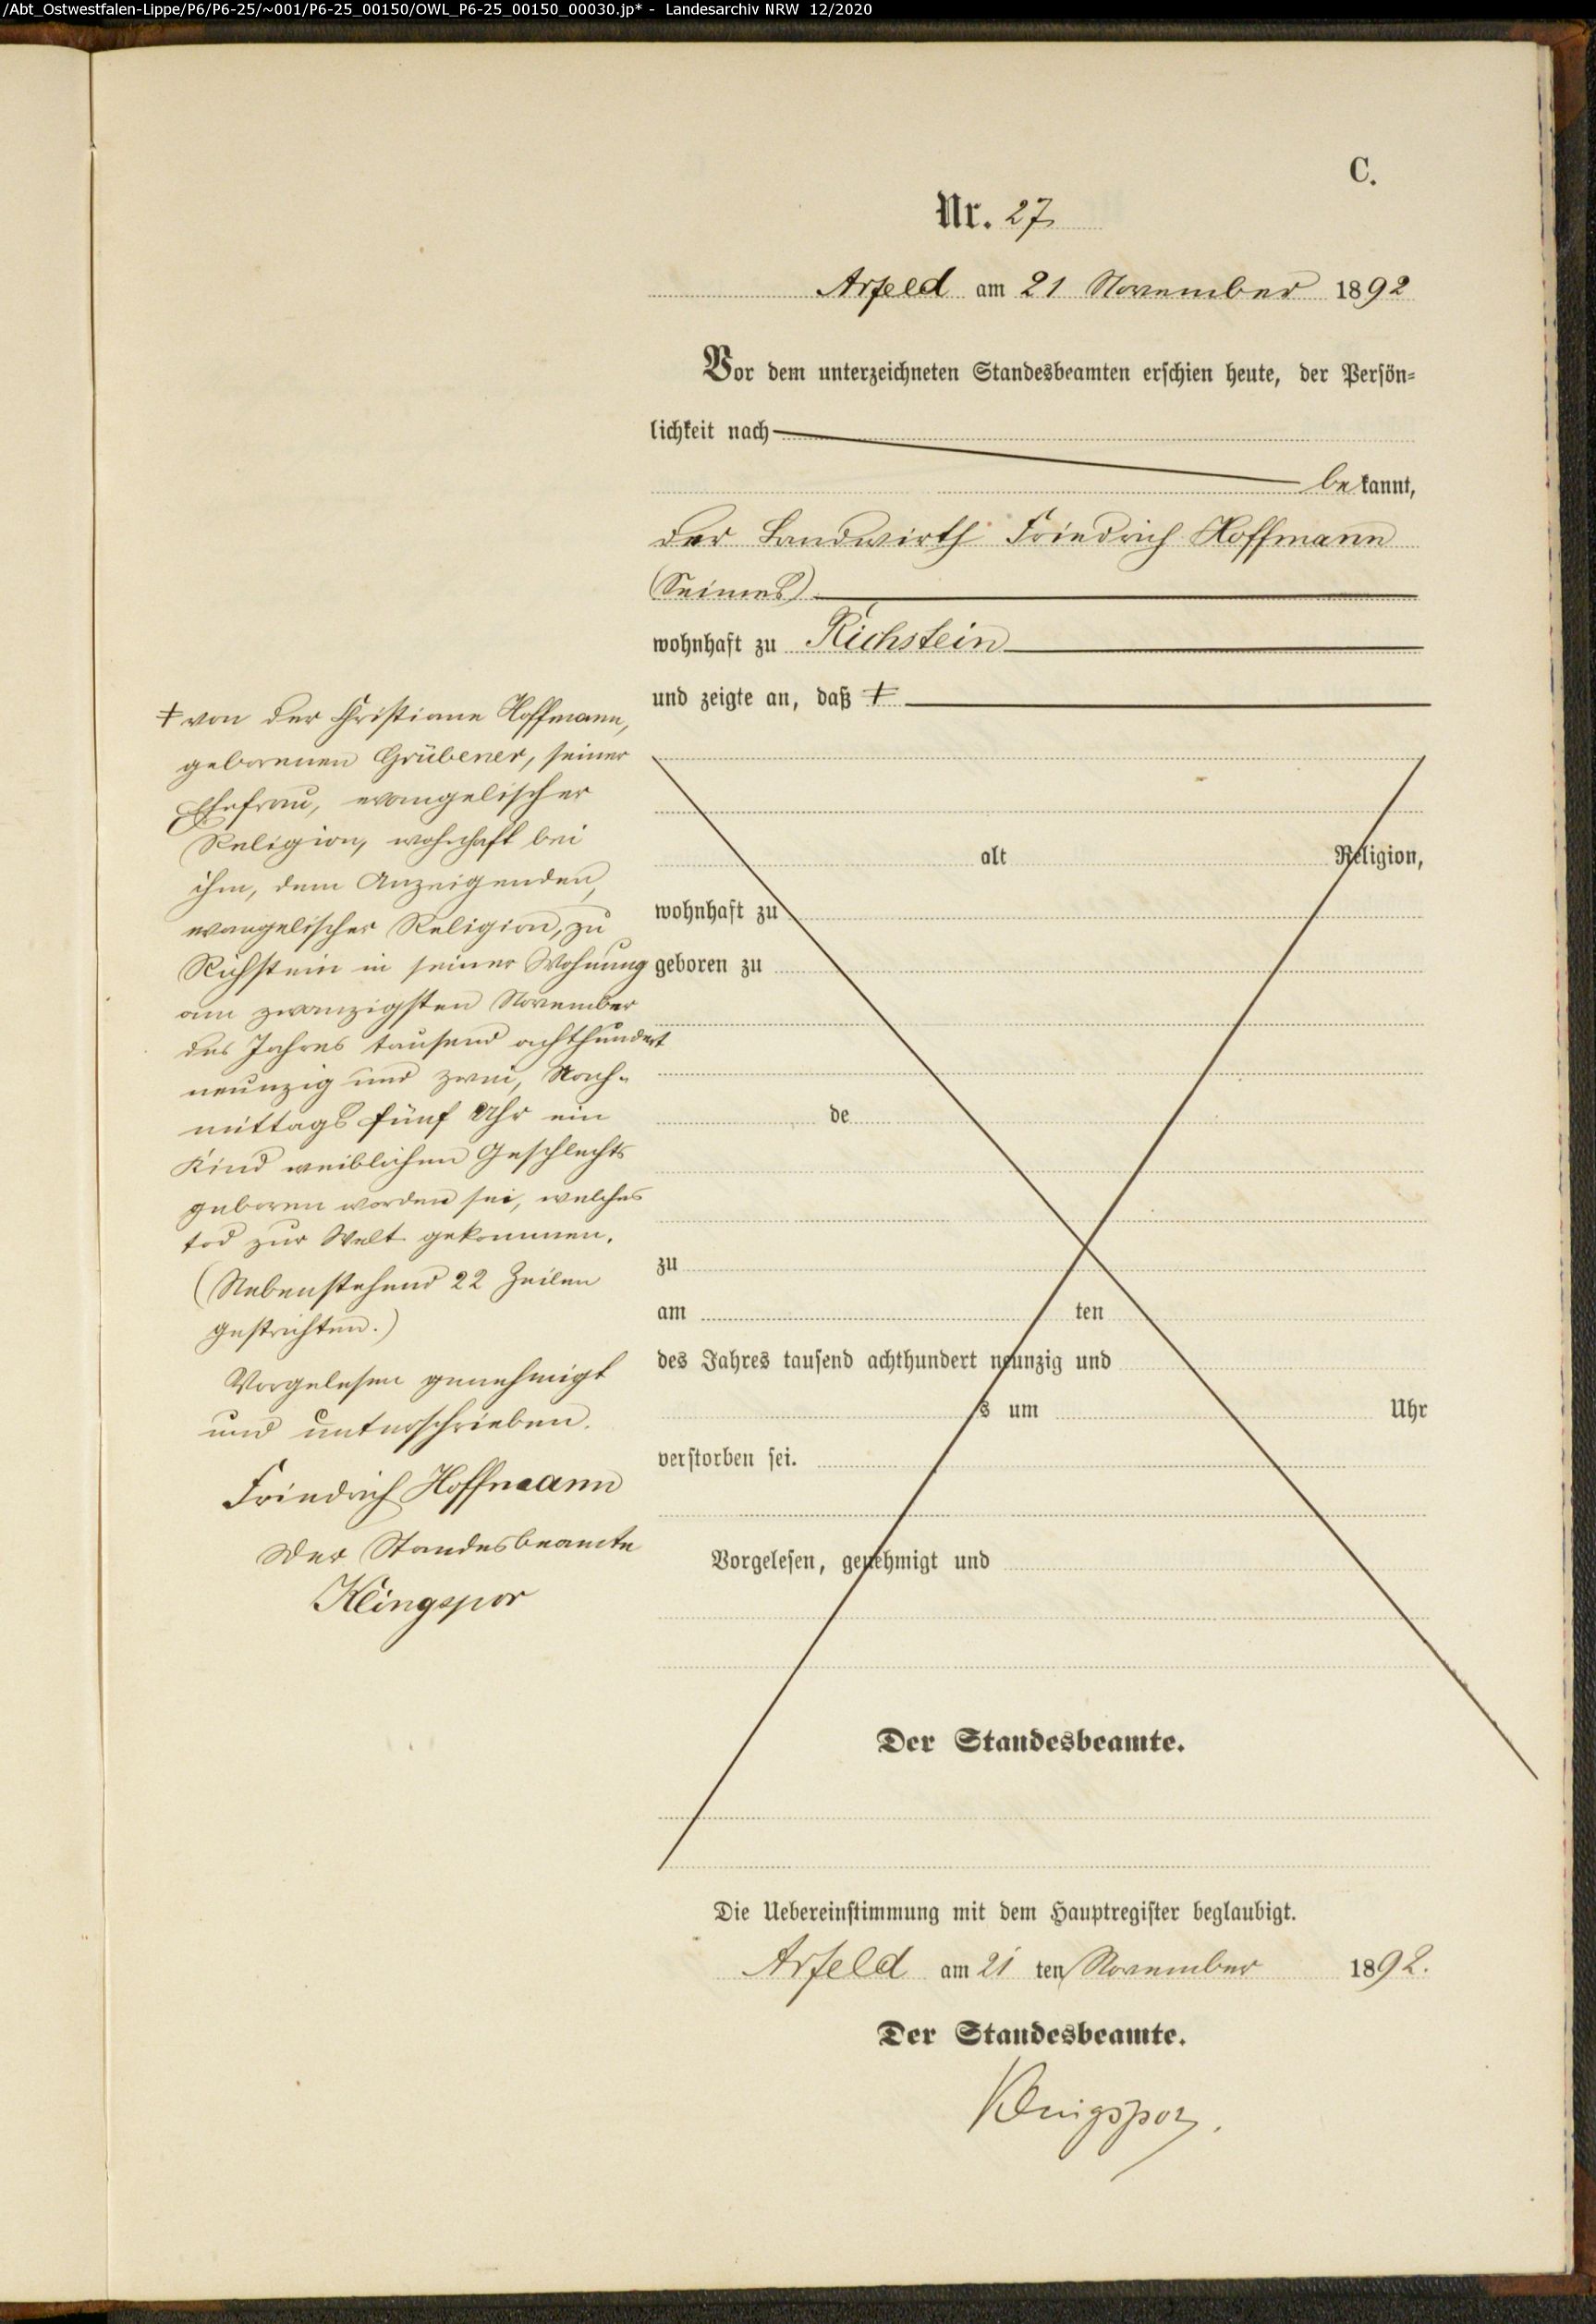 /Abt_Ostwestfalen-Lippe/P6/P6-25/~001/P6-25_00150/OWL_P6-25_00150_00030.jp* - Landesarchiv NRW 12/2020
C.
Nr. 27
Arfeld am 21 November 1892
Vor dem unterzeichneten Standesbeamten erschien heute, der Persön-
lichkeit nach
bekannt,
der Landwirth Friedrich Hoffmann
(Seimes)
wohnhaft zu Richstein
und zeigte an, daß ‡
‡ von der Christiane Hoffmann,
geborenen Grübener, seiner
Ehefrau, evangelischer
Religion, wohnhaft bei
ihm, dem Anzeigenden,
evangelischer Religion, zu
Richstein in seiner Wohnung
am zwanzigsten November
des Jahres tausend achthundert
neunzig und zwei, Nach-
mittags fünf Uhr ein
Kind weiblichen Geschlechts
geboren worden sei, welches
tod zur Welt gekommen.
(Nebenstehend 22 Zeilen
gestrichten.)
Vorgelesen genehmigt
und unterschrieben.
Friedrich Hoffmann
Der Standesbeamte
Klingspor
alt Religion,
wohnhaft zu
geboren zu
de
zu
am ten
des Jahres tausend achthundert neunzig und
s um Uhr
verstorben sei.
Vorgelesen, genehmigt und
Der Standesbeamte.
Die Uebereinstimmung mit dem Hauptregister beglaubigt.
Arfeld am 21 ten November 1892.
Der Standesbeamte.
Klingspor.